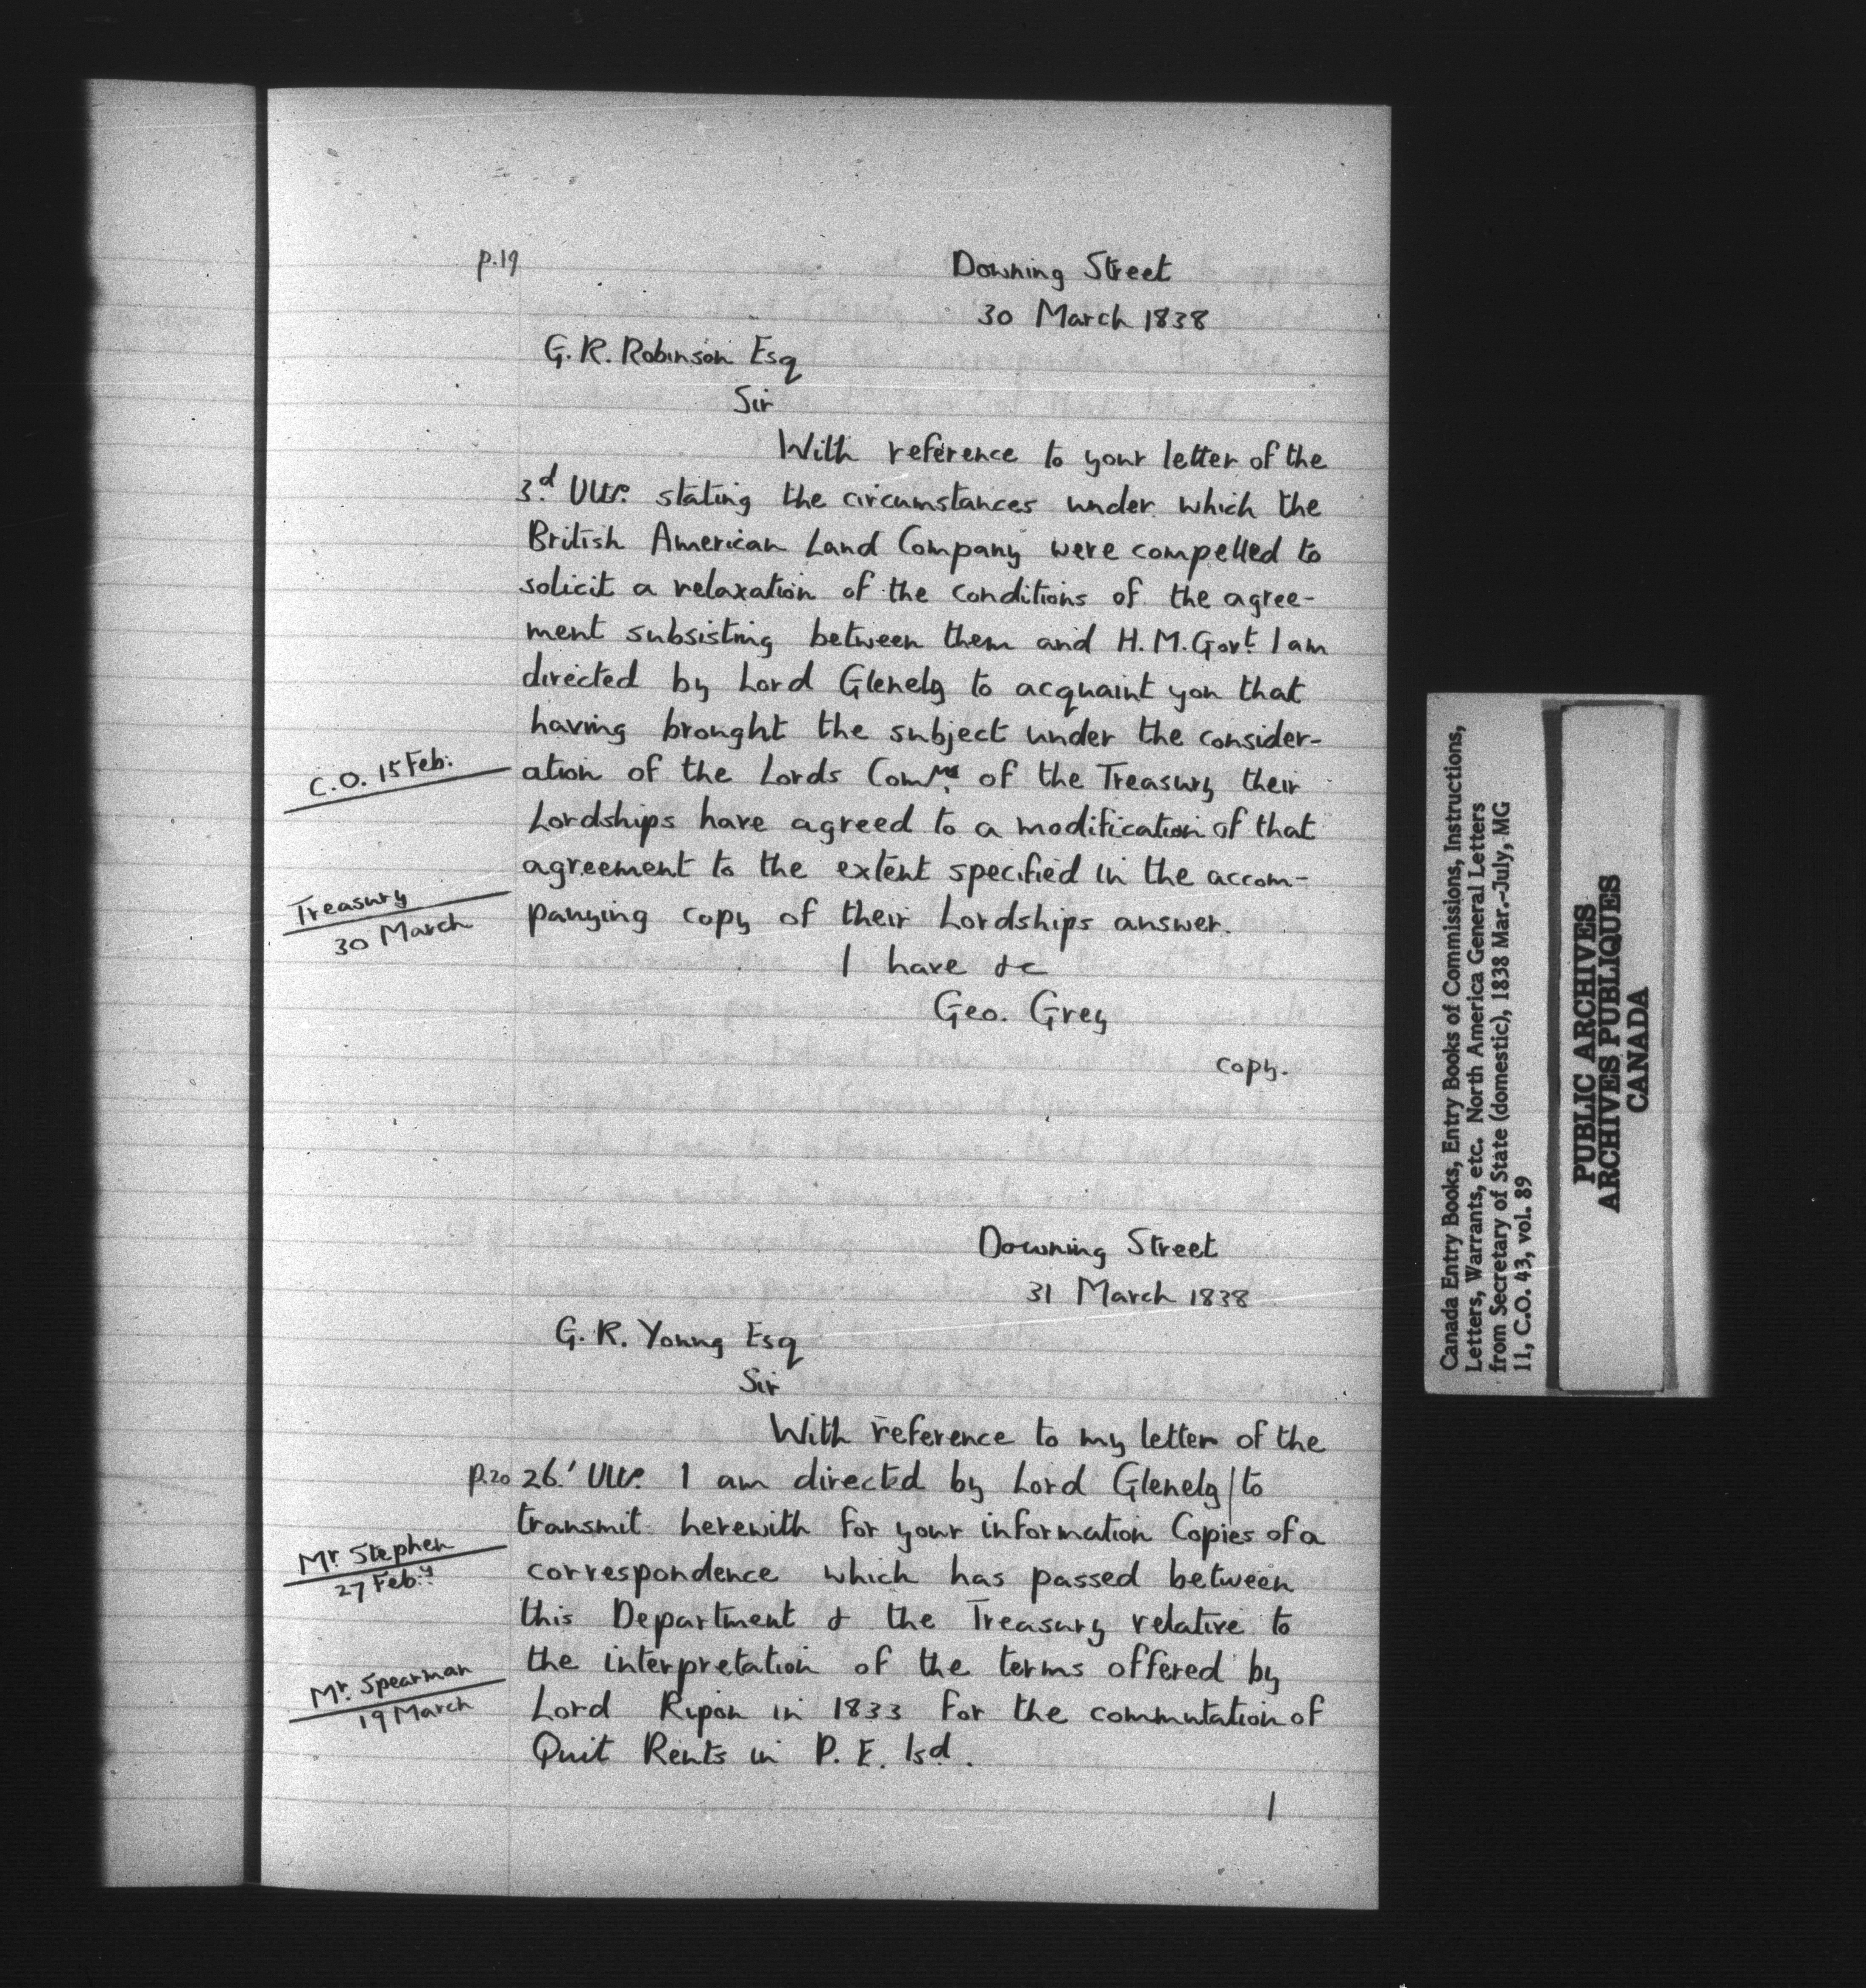 p.19
Downing Street
30 March 1838
G. R. Robinson Esq
Sir
With reference to your letter of the
3.d Ulto. stating the circumstances under which the
British American Land Company were compelled to
solicit a relaxation of the conditions of the agree-
ment subsisting between them and H. M. Govt. I am
directed by Lord Glenelg to acquaint you that
having brought the subject under the consider-
C.O. 15 Feb:
ation of the Lords Comrs. of the Treasury their
Lordships have agreed to a modification of that
agreement to the extent specified in the accom-
Treasury
30 March
panying copy of their Lordships answer.
I have &c
Geo. Grey
copy.
Downing Street
31 March 1838
G. R. Young Esq
Sir
With reference to my letter of the
p.20 26.' Ulto. I am directed by Lord Glenelg | to
transmit herewith for your information Copies of a
Mr Stephen
27 Feb:y
correspondence which has passed between
this Department & the Treasury relative to
the interpretation of the terms offered by
Mr. Spearman
19 March
Lord Ripon in 1833 for the commutation of
Quit Rents in P. E. Isd.
I
Canada Entry Books, Entry Books of Commissions, Instructions,
Letters, Warrants, etc. North America General Letters
from Secretary of State (domestic), 1838 Mar.-July, MG
11, C.O. 43, vol. 89
PUBLIC ARCHIVES
ARCHIVES PUBLIQUES
CANADA